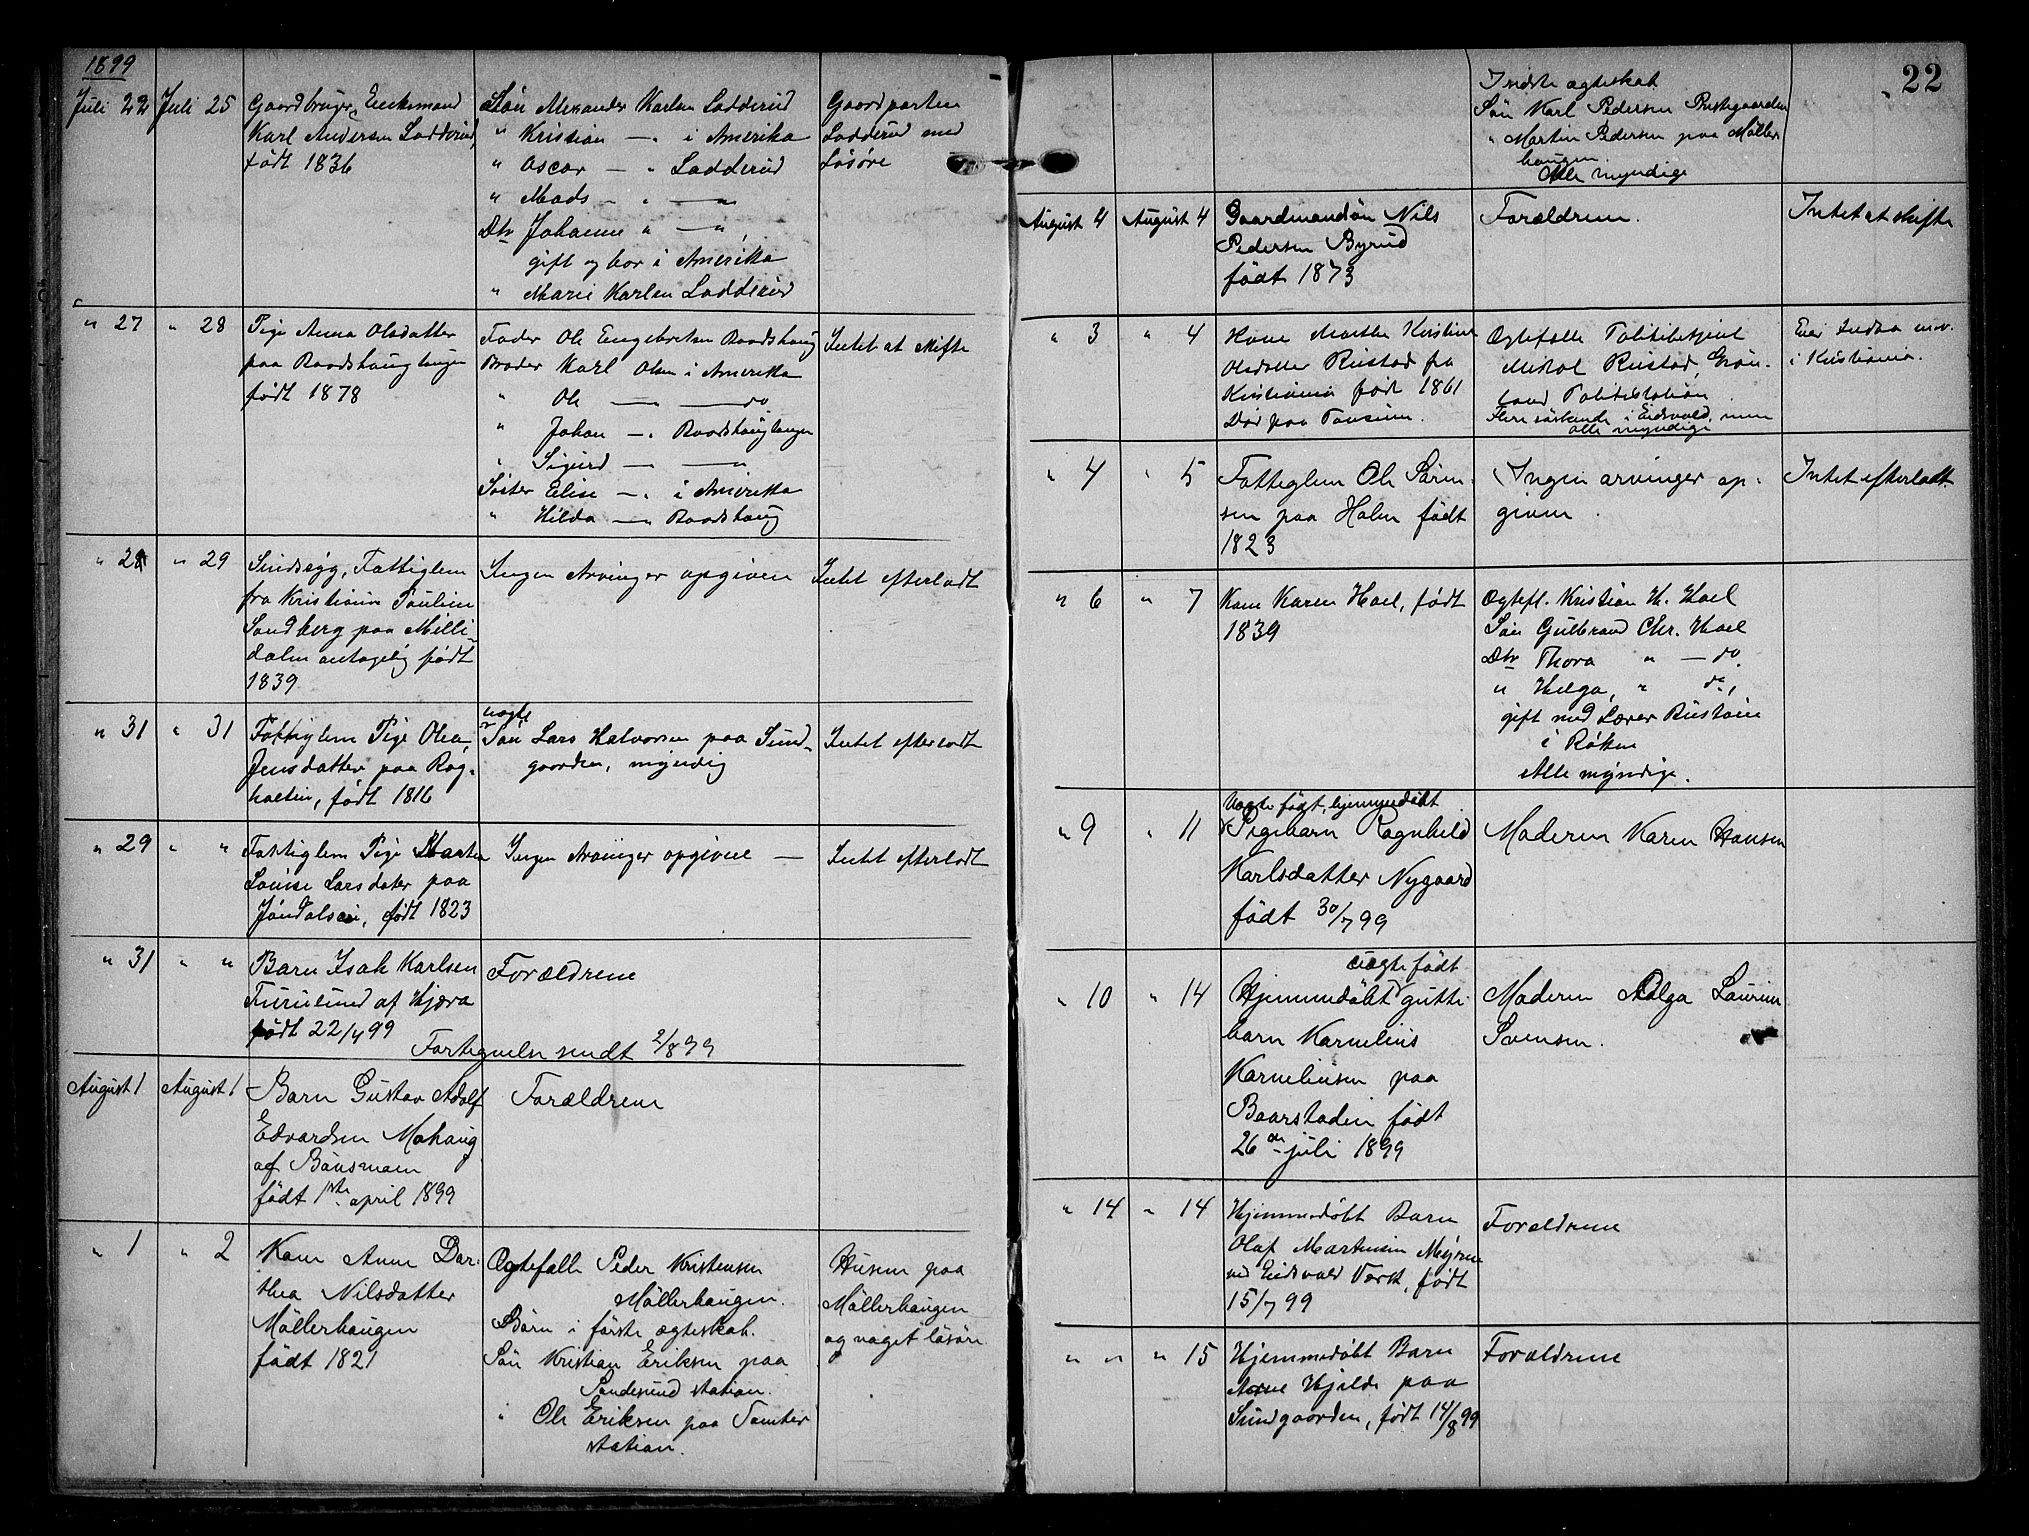 1899
Juli 22 Juli 25 Gaardbruger, Enkemand Søn Alexander Karlsen Ladderud Gaardparten
Karl Andersen Ladderud, " Kristian — " i Amerika Ladderud med
født 1836 " Oscar — " Ladderud Løsøre
" Mads — " —
Dtr Johanne " — "
gift og bor i Amerika
" Marie Karlsen Ladderud
" 27 " 28 Pige Anna Olsdatter Fader Ole Engebretsen Raadshaug Intet at skifte
paa Raadshaugtangen Broder Karl Olsen i Amerika
født 1878 " Ole — — do
" Johan — " Raadshaugtangen
" Sigurd — —
Søster Elise — " i Amerika
" Hilda — " Raadshaug
" 28 " 29 Sindssyg, Fattiglem Ingen Arvinger opgiven Intet efterladt
fra Kristiania Pauline
Sandberg paa Milli-
dalen antagelig født
1839
" 31 " 31 Fattiglem Pige Olea uægte Søn Lars Halvorsen paa Sund- Intet efterladt
Jensdatter paa Rog- gaarden, myndig
holtin, født 1816
" 29 " " Fattiglem Pige Marthea Ingen Arvinger opgivne — Intet efterladt
Louise Larsdater paa
Jøndalsen, født 1823
" 31 " " Barn Isak Karlsen Forældrene
Furulund af Hjæra
født 22/4 99
Fortegnelse sendt 2/8 99
August 1 August 1 Barn Gustav Adolf Forældrene
Edvardsen Mohaug
af Bønsmoen
født 1ste april 1899
" 1 " 2 Kone Anne Dor- Ægtefælle Peder Kristensen Husene paa
thea Nilsdatter Møllerhaugen. Møllerhaugen
Møllerhaugen Børn i første ægteskab. og noget løsøre
født 1821 Søn Kristian Eriksen paa
Sandesund station.
" Ole Eriksen paa Tomter
station.
22
I sidste ægteskab
Søn Karl Pedersen Prestegaarden
" Martin Pedersen paa Møller
haugen.
Alle myndige
August 4 August 4 Gaardmandsøn Nils Forældrene. Intet at skifte
Pedersen Byrud
født 1873
" 3 " 4 Kone Marthe Kristine Ægtefælle Politibetjent Eier Indbo m.v.
Olsdatter Rustad fra Mikal Rustad, Grøn- i Kristiania.
Kristiania født 1861 land Politistation.
Død paa Tønsum. Flere søskende i Eidsvold, men
alle myndige
" 4 " 5 Fattiglem Ole Søren- Ingen arvinger op- Intet efterladt.
sen paa Holm født given.
1823
" 6 " 7 Kone Karen Hoel, født Ægtefl. Kristian H. Hoel
1839 Søn Gulbrand Chr. Hoel
Dtr Thora " — do.
" Helga, " do,
gift med Lærer Rustøen
i Røken
Alle myndige.
Uægte født, hjemmedøbt
" 9 " 11 Pigebarn Ragnhild Moderen Karen Hansen
Karlsdatter Nygaard
født 30/7 99
uægte født
" 10 " 14 Hjemmedøbt gutte- Moderen Olga Laurine
barn Kornelius Svensen.
Korneliusen paa
Baarstaden født
26de juli 1899
" 14 " 14 Hjemmedøbt Barn Forældrene
Olaf Martinsen Myrene
ved Eidsvold Værk, født
15/7 99
" " " 15 Hjemmedøbt Barn Forældrene
Arne Hjelde paa
Sundgaarden, født 14/8 99